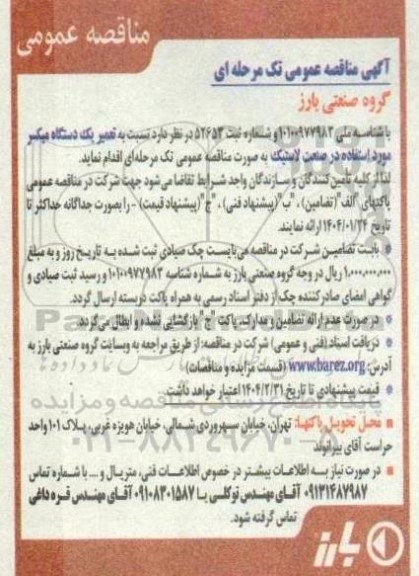 مناقصه عمومی
آگهی مناقصه عمومی تک مرحله ای
گروه صنعتی بارز
با شناسه ملی ۱۰۱۰۰۹۷۷۹۸۲ و شماره ثبت ۵۲۶۵۳ در نظر دارد نسبت به تعمیر یک دستگاه میکسر
مورد استفاده در صنعت لاستیک به صورت مناقصه عمومی تک مرحله‌ای اقدام نماید.
لذا از کلیه تأمین کنندگان و سازندگان واجد شرایط تقاضا می‌شود جهت شرکت در مناقصه عمومی
پاکتهای "الف"(تضامین) ، "ب"(پیشنهاد فنی) ، "ج"(پیشنهاد قیمت) - را بصورت جداگانه حداکثر تا
تاریخ ۱۴۰۴/۰۱/۲۴ ارائه نمایند.
● بابت تضامین شرکت در مناقصه می‌بایست چک صیادی ثبت شده به تاریخ روز و به مبلغ
۱.۰۰۰.۰۰۰.۰۰۰ ریال در وجه گروه صنعتی بارز به شماره شناسه ۱۰۱۰۰۹۷۷۹۸۲ و رسید ثبت صیادی و
گواهی امضای صادرکننده چک از دفتر اسناد رسمی به همراه پاکت دربسته ارسال گردد.
● در صورت عدم ارائه تضامین و مدارک، پاکت "ج" بازگشایی نشده و ابطال می‌گردد.
● دریافت اسناد (فنی و عمومی) شرکت در مناقصه: از طریق مراجعه به وبسایت گروه صنعتی بارز به
آدرس: www.barez.org (قسمت مزایده و مناقصات)
● قیمت پیشنهادی تا تاریخ ۱۴۰۴/۲/۳۱ اعتبار خواهد داشت.
■ محل تحویل پاکتها: تهران، خیابان سهروردی شمالی، خیابان هویزه غربی، پلاک ۱۰۱ واحد
حراست آقای بیرانوند
● در صورت نیاز به اطلاعات بیشتر در خصوص اطلاعات فنی، متریال و ... با شماره تماس
۰۹۱۳۱۴۸۷۹۸۷ آقای مهندس توکلی یا ۰۹۱۰۸۳۰۱۵۸۷ آقای مهندس قره داغی
تماس گرفته شود.
بارز
پایگاه اطلاع رسانی مناقصه و مزایده